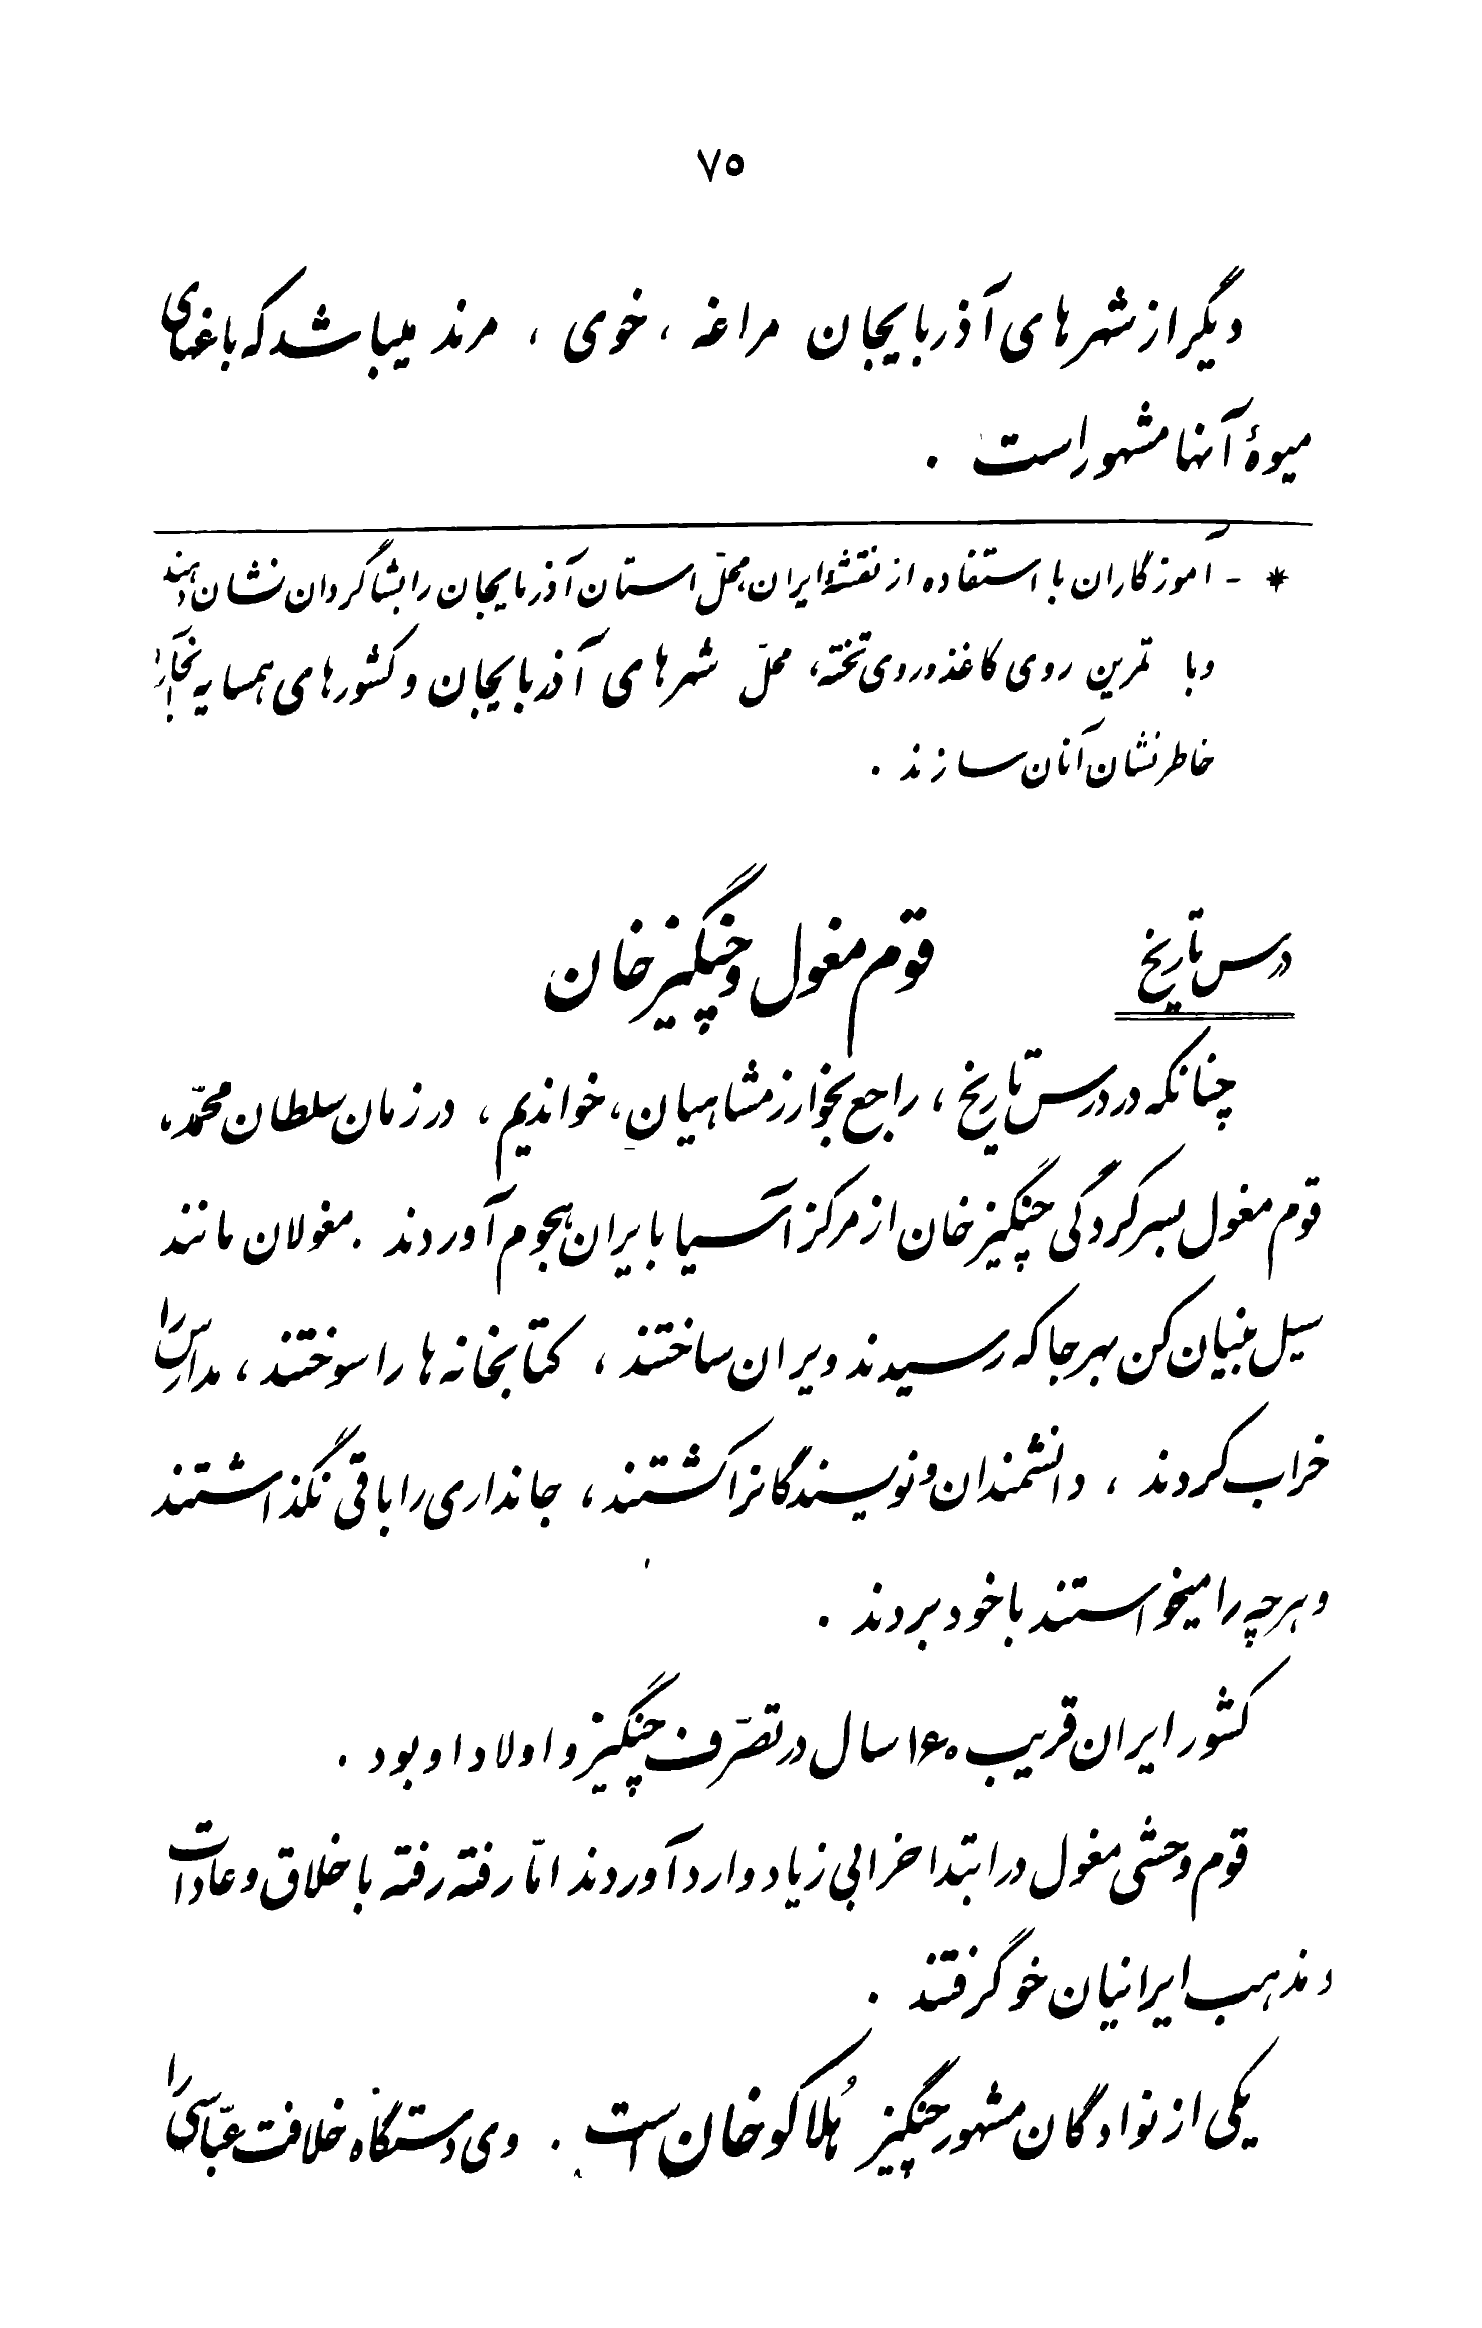 ۷۵
دیگر از شهرهای آذربایجان مراغه ، خوی ، مرند میباشد که باغهای
میوهٔ آنها مشهور است .
* - آموزگاران با استفاده از نقشهٔ ایران، محلّ استان آذربایجان را بشاگردان نشان دهند
و با تمرین روی کاغذ و روی تخته، محلّ شهرهای آذربایجان و کشورهای همسایه آنجا را
خاطرنشان آنان سازند .
درس تاریخ
قوم مغول و چنگیزخان
چنانکه در درس تاریخ ، راجع بخوارزمشاهیان ، خواندیم ، در زمان سلطان محمّد ،
قوم مغول بسرکردگی چنگیزخان از مرکز آسیا بایران هجوم آوردند . مغولان مانند
سیل بنیان کن بهر جا که رسیدند ویران ساختند ، کتابخانه ها را سوختند ، مدارس را
خراب کردند ، دانشمندان و نویسندگانرا کشتند ، جانداری را باقی نگذاشتند
و هر چه را میخواستند با خود بردند .
کشور ایران قریب ۱۶۰ سال در تصرّف چنگیز و اولاد او بود .
قوم وحشی مغول در ابتدا خرابی زیاد وارد آوردند امّا رفته رفته با خلاق و عادات
و مذهب ایرانیان خو گرفتند .
یکی از نوادگان مشهور چنگیز هُلاکوخان است . وی دستگاه خلافت عبّاسی را